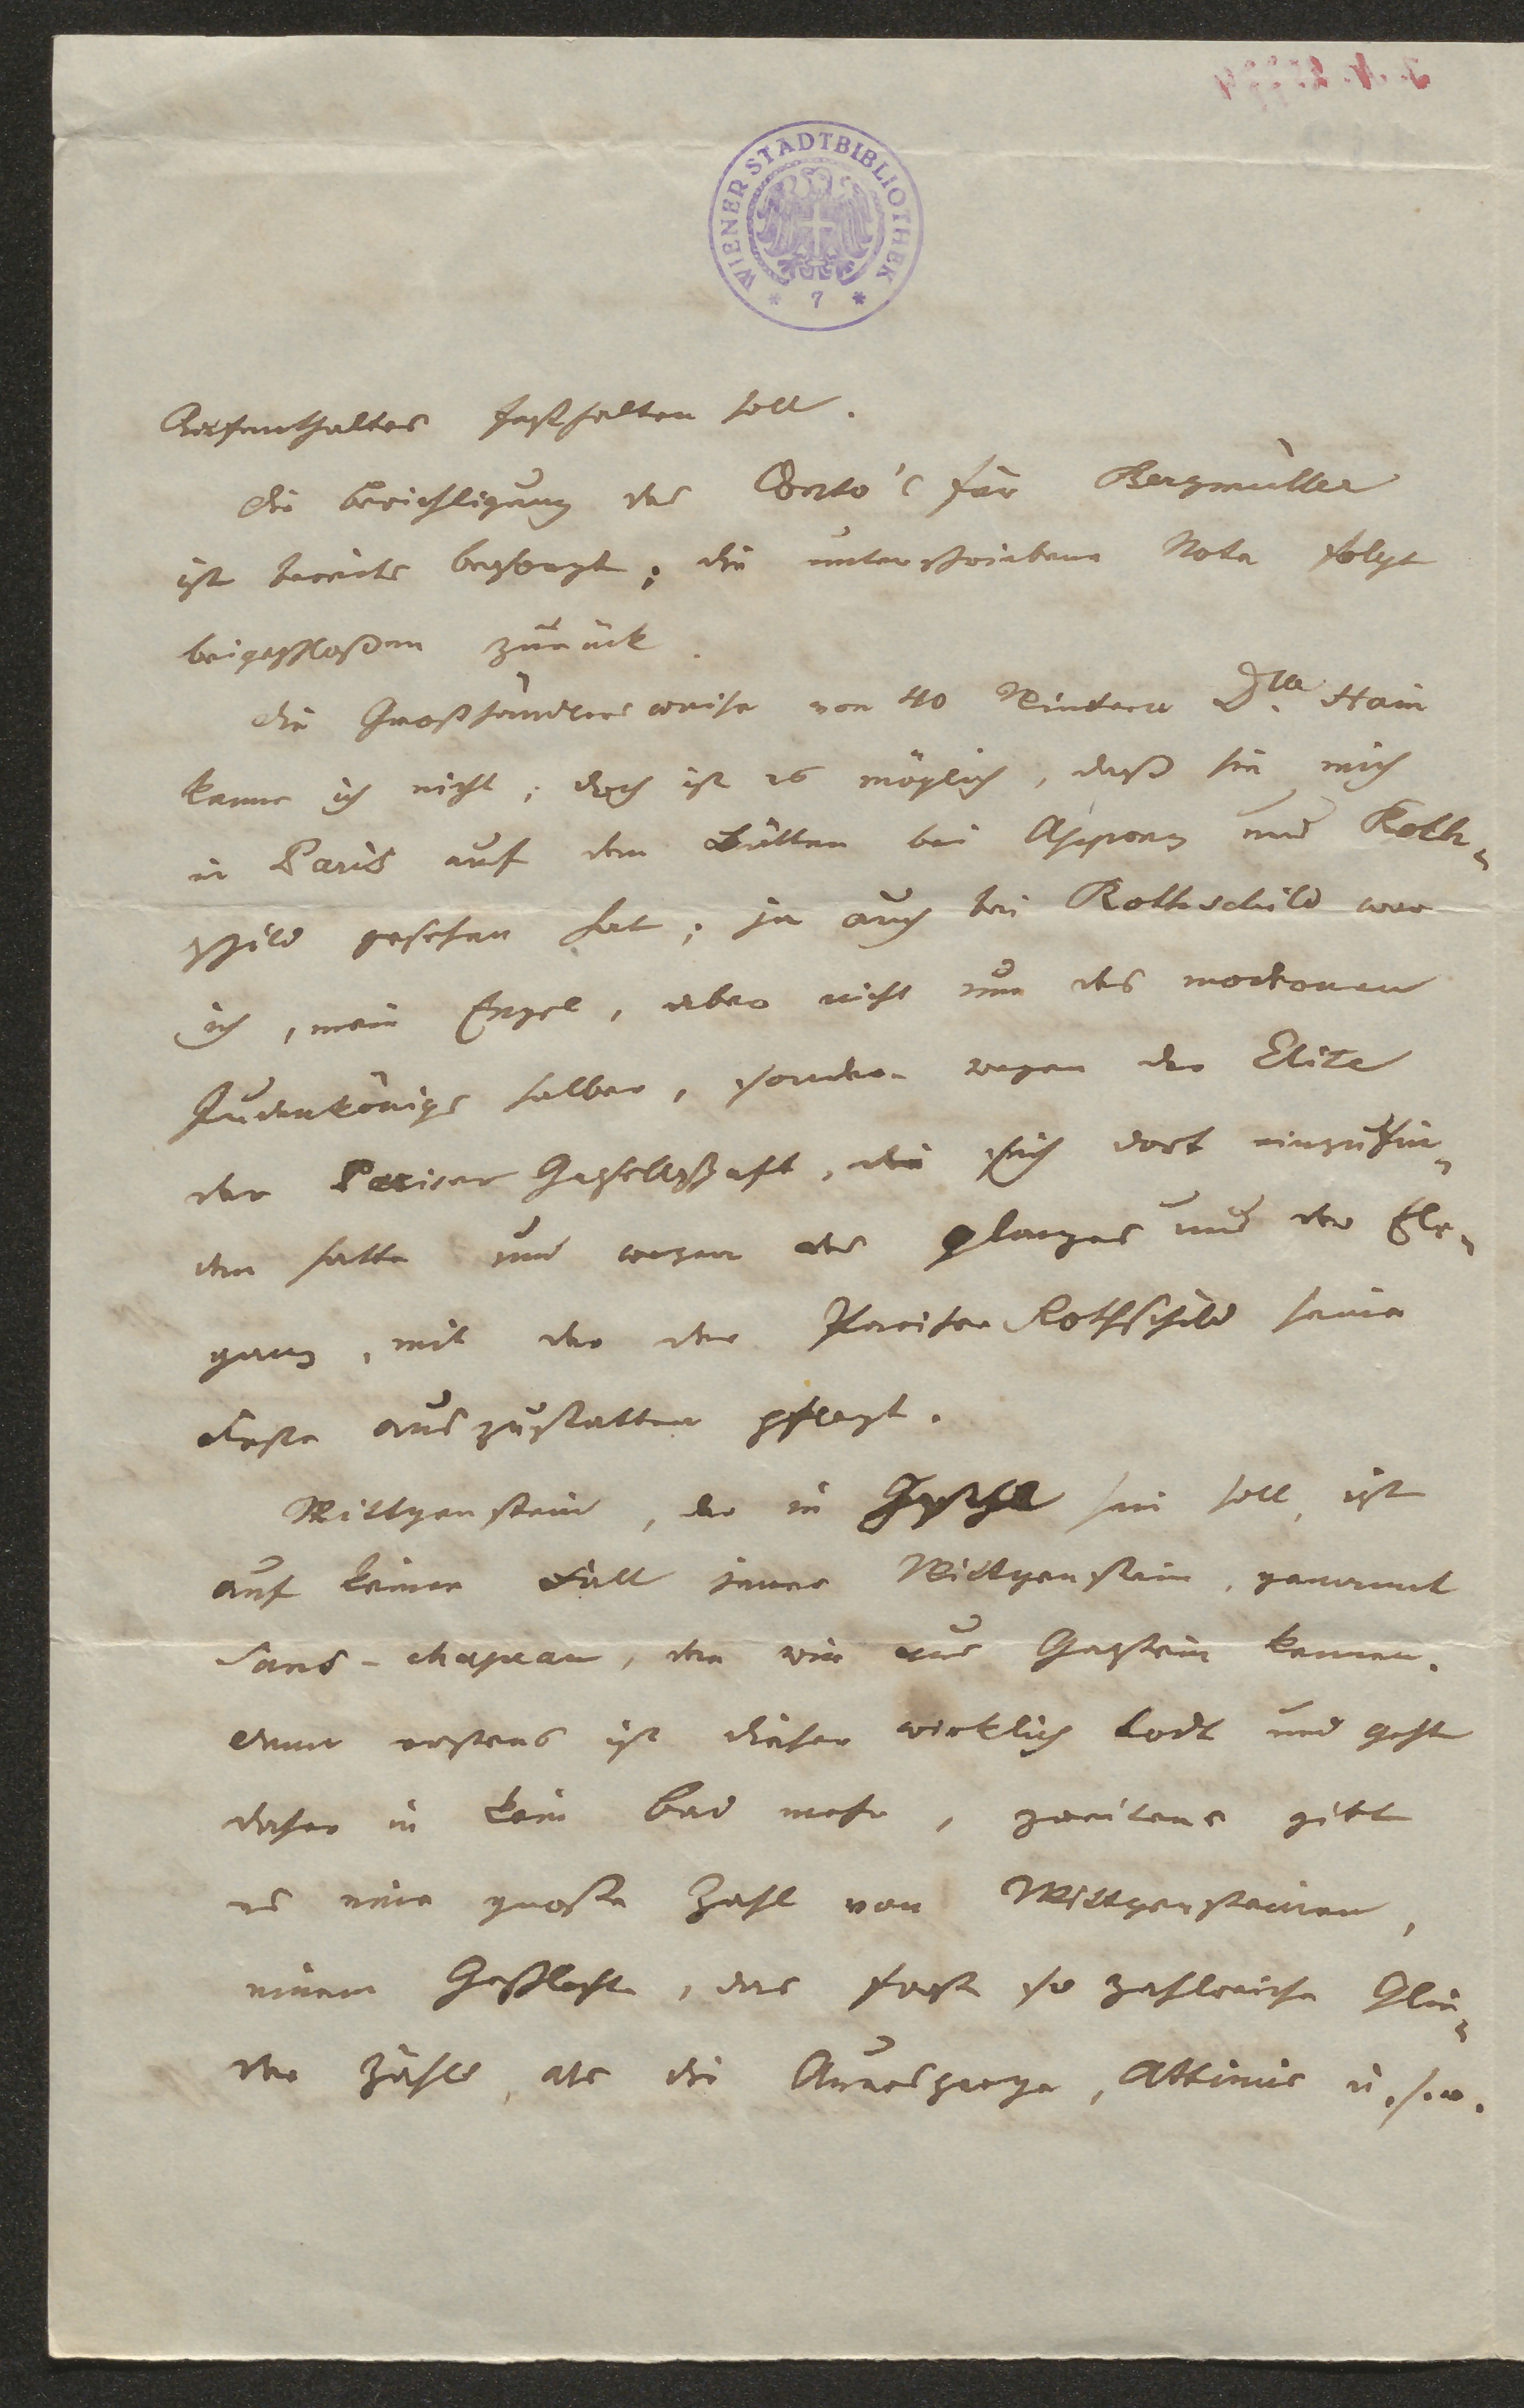 WIENER STADTBIBLIOTHEK
* 7 *
Aufenthaltes festhalten soll.
Die Berichtigung des Conto's für Bergmüller
ist bereits besorgt; die unterschriebene Nota folgt
beigeschloßen zurück.
Die Großhändlerswaise von 40 Kindern Dlle Hain
kenne ich nicht; doch ist es möglich, daß sie mich
in Paris auf den Bällen bei Appony und Roth-
schild gesehen hat; ja auch bei Rothschild war
ich, mein Engel, aber nicht um des modernen
Judenkönigs halber, sondern wegen der Elite
der Pariser Gesellschaft, die sich dort einzufin-
den hatte und wegen des Glanzes und der Ele-
ganz, mit der der Pariser Rothschild seine
Feste auszustatten pflegt.
Wittgenstein, der in Ischl sein soll, ist
auf keinen Fall jener Wittgenstein, genannt
Sans-chapeau, den wir aus Gastein kennen.
Denn erstens ist dieser wirklich todt und geht
daher in kein Bad mehr, zweitens gibt
es eine große Zahl von Wittgensteinen,
einem Geschlechte, das fast so zahlreiche Glie-
der zählt, als die Auersperge, Attimis u.s.w.